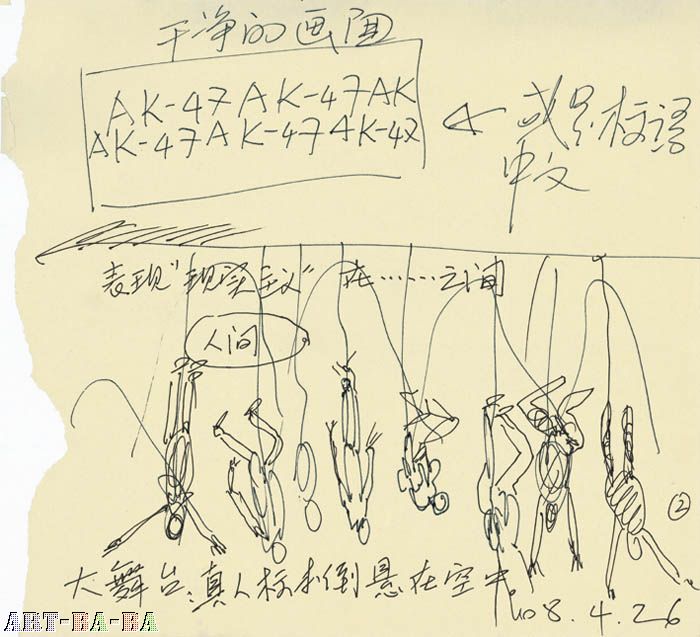 干净的画面
AK-47AK-47AK
AK-47AK-47AK-47
或是标語
中文
表现"现实主义" 在……之间
人间
②
大舞台:真人标本倒悬在空中。
08.4.26
ART-BA-BA